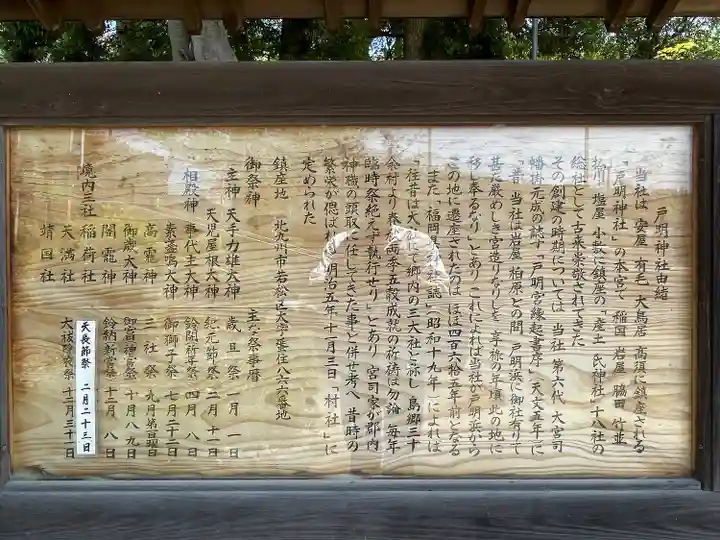 戸明神社由緒
当社は 安屋 有毛 大鳥居 高須に鎮座される
「戸明神社」の本宮で 稲国 岩屋 脇田 竹並
払川 塩屋 小敷に鎮座の「産土 氏神社」十八社の
総社として古来崇敬されてきた
その創建の時期については 当社 第六代 大宮司
幡掛元成の誌す「戸明宮縁起書序」天文五年に
「昔 当社は岩屋 柏原どの間 戸明浜に御社有りて
甚だ厳めしき宮造りなりしを 享禄の年頃 此の地に
移し奉るなり」とあり これによれば当社が戸明浜から
この地に遷座されたのは ほぼ四百六拾五年前となる
また「福岡県神社誌」(昭和十九年)によれば
「往昔は大社にて郷内の三大社と称し 島郷三十
余村より春秋両季五穀成就の祈祷は勿論 毎年
臨時祭絶えず執行せり」とあり 宮司家が郡内
神職の頭取に任じてきた事と併せ考へ 昔時の
繁栄が偲ばれる 明治五年十一月三日「村社」に
定められた
鎮座地 北九州市若松区大字蜑住八六六番地
御祭神 主な祭事暦
主神 天手力雄大神 歳旦祭 一月一日
天児屋根大神 紀元節祭 二月十一日
相殿神 事代主大神 鈴開祈年祭 四月八日
素盞嗚大神 御獅子祭 七月二十二日
高龗神 三社祭 九月第一日曜日
御歳大神 御宮神幸祭 十月八九日
闇龗神 鈴納新嘗祭 十二月八日
境内三社 稲荷社 大祓除夜祭 十二月三十一日
天満社
靖国社
天長節祭 二月二十三日